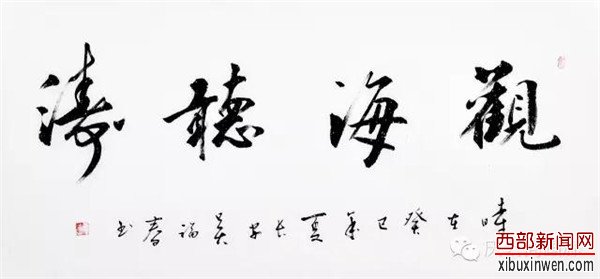 觀海聽濤
時在癸巳年夏长安吴福春书
西部新闻网
xibuxinwen.com